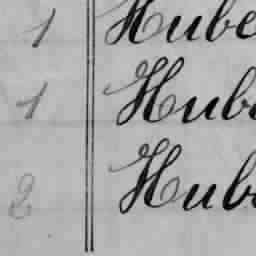 1 Hube
1 Hube
2 Hube